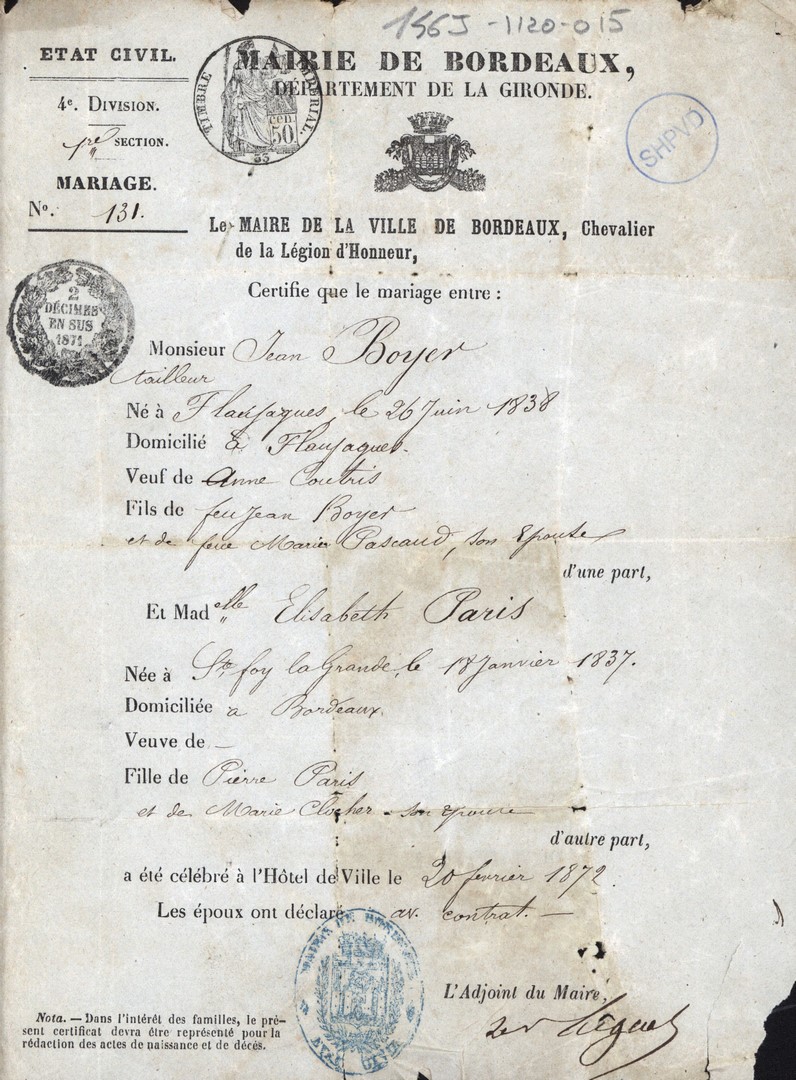 156J-1120-015
ETAT CIVIL.
4e. DIVISION.
1re SECTION.
MARIAGE.
No. 131.
TIMBRE IMPERIAL.
50 cen.
MAIRIE DE BORDEAUX,
DÉPARTEMENT DE LA GIRONDE.
SHPVD
Le MAIRE DE LA VILLE DE BORDEAUX, Chevalier
de la Légion d'Honneur,
Certifie que le mariage entre :
2
DÉCIMES
EN SUS
1871
Monsieur Jean Boyer
tailleur
Né à Flaujagues, le 26 Juin 1838
Domicilié à Flaujagues.
Veuf de Anne Coutris
Fils de feu Jean Boyer
et de feue Marie Pascaud, son Epouse
d'une part,
Et Madelle Elisabeth Paris
Née à Ste foy la Grande, le 18 Janvier 1837.
Domiciliée a Bordeaux.
Veuve de —
Fille de Pierre Paris
et de Marie Clocher son épouse
d'autre part,
a été célébré à l'Hôtel de Ville le 20 février 1872.
Les époux ont déclaré av. contrat. —
MAIRIE DE BORDEAUX
ETAT CIVIL
L'Adjoint du Maire,
Nota. — Dans l'intérêt des familles, le pré-
sent certificat devra être représenté pour la
rédaction des actes de naissance et de décés.